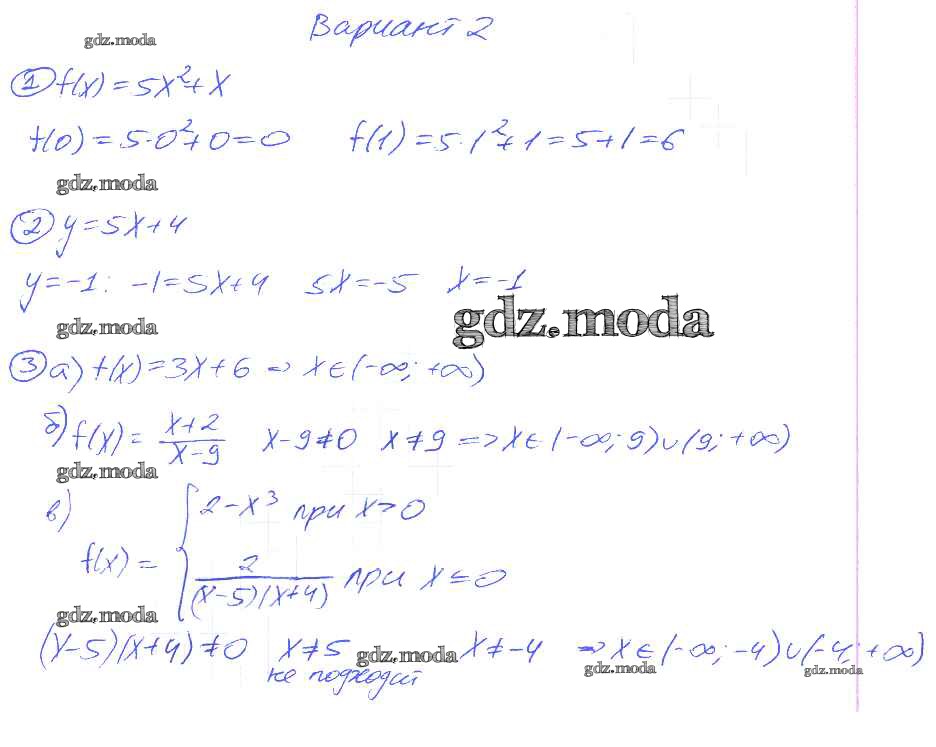 Вариант 2
gdz.moda
① f(x) = 5x² + x
f(0) = 5·0² + 0 = 0 f(1) = 5·1² + 1 = 5 + 1 = 6
gdz.moda
② y = 5x + 4
y = -1: -1 = 5x + 4 5x = -5 x = -1
gdz.moda
gdz.moda
③ а) f(x) = 3x + 6 ⇒ x ∈ (-∞; +∞)
б) f(x) = (x+2)/(x-9) x - 9 ≠ 0 x ≠ 9 => x ∈ (-∞; 9) ∪ (9; +∞)
gdz.moda
в) f(x) = { 2 - x³ при x > 0
2/((x-5)(x+4)) при x ≤ 0
gdz.moda
(x-5)(x+4) ≠ 0 x ≠ 5 gdz.moda x ≠ -4 ⇒ x ∈ (-∞; -4) ∪ (-4; +∞)
не подходит gdz.moda gdz.moda